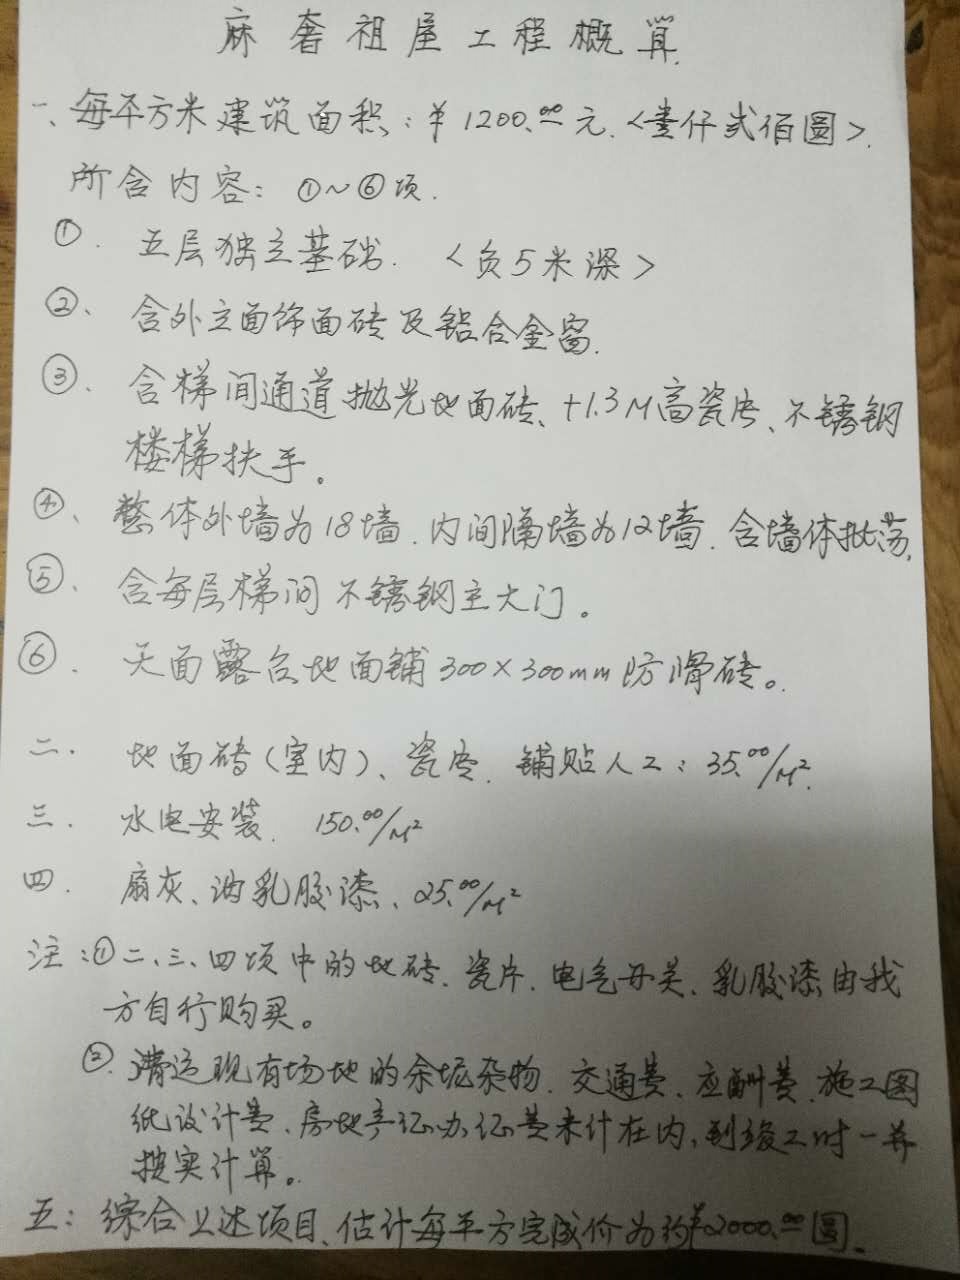 麻奢祖屋工程概算.
一、每平方米建筑面积:¥1200.00元.<壹仟弍佰圆>.
所含内容:①~⑥项.
①. 五层独立基础. <负5米深>
②、含外立面饰面砖及铝合金窗.
③、含梯间通道抛光地面砖、+1.3M高瓷片、不锈钢
楼梯扶手。
④、整体外墙为18墙.内间隔墙为12墙.含墙体批荡.
⑤、含每层梯间不锈钢主大门。
⑥. 天面露台地面铺300×300mm防滑砖。
二. 地面砖(室内)、瓷片.铺贴人工:35.00/M².
三. 水电安装. 150.00/M²
四. 扇灰、油乳胶漆、25.00/M²
注:①二、三、四项中的地砖、瓷片、电气开关、乳胶漆由我
方自行购买。
②.清运现有场地的余坭杂物.交通费、应酬费.施工图
纸设计费、房地产证办证费未计在内,到竣工时一并
按实计算。
五:综合上述项目、估计每平方完成价为约¥2000.00圆.